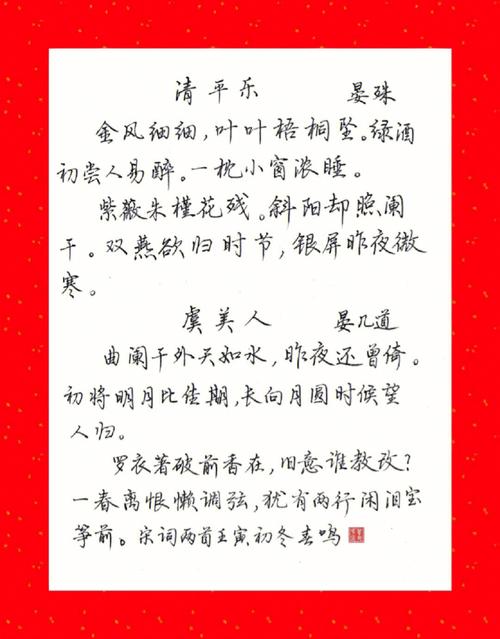 清平乐 晏殊
金风细细,叶叶梧桐坠。绿酒
初尝人易醉。一枕小窗浓睡。
紫薇朱槿花残。斜阳却照阑
干。双燕欲归时节,银屏昨夜微
寒。
虞美人 晏几道
曲阑干外天如水,昨夜还曾倚。
初将明月比佳期,长向月圆时候望
人归。
罗衣著破前香在,旧意谁教改?
一春离恨懒调弦,犹有两行闲泪宝
筝前。宋词两首壬寅初冬春鸣